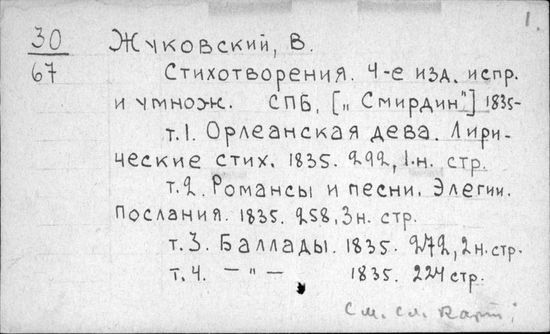 1.
30
67
Жуковский, В.
Стихотворения. 4-е изд. испр.
и умнож. СПБ, [„Смирдин"] 1835-
т.1. Орлеанская дева. Лири-
ческие стих. 1835. 292, 1.н. стр.
т.2. Романсы и песни. Элегии.
Послания. 1835. 258, 3н. стр.
т.3. Баллады. 1835. 272, 2н.стр.
т.4. — " — 1835. 224 стр.
См. сл. карт;